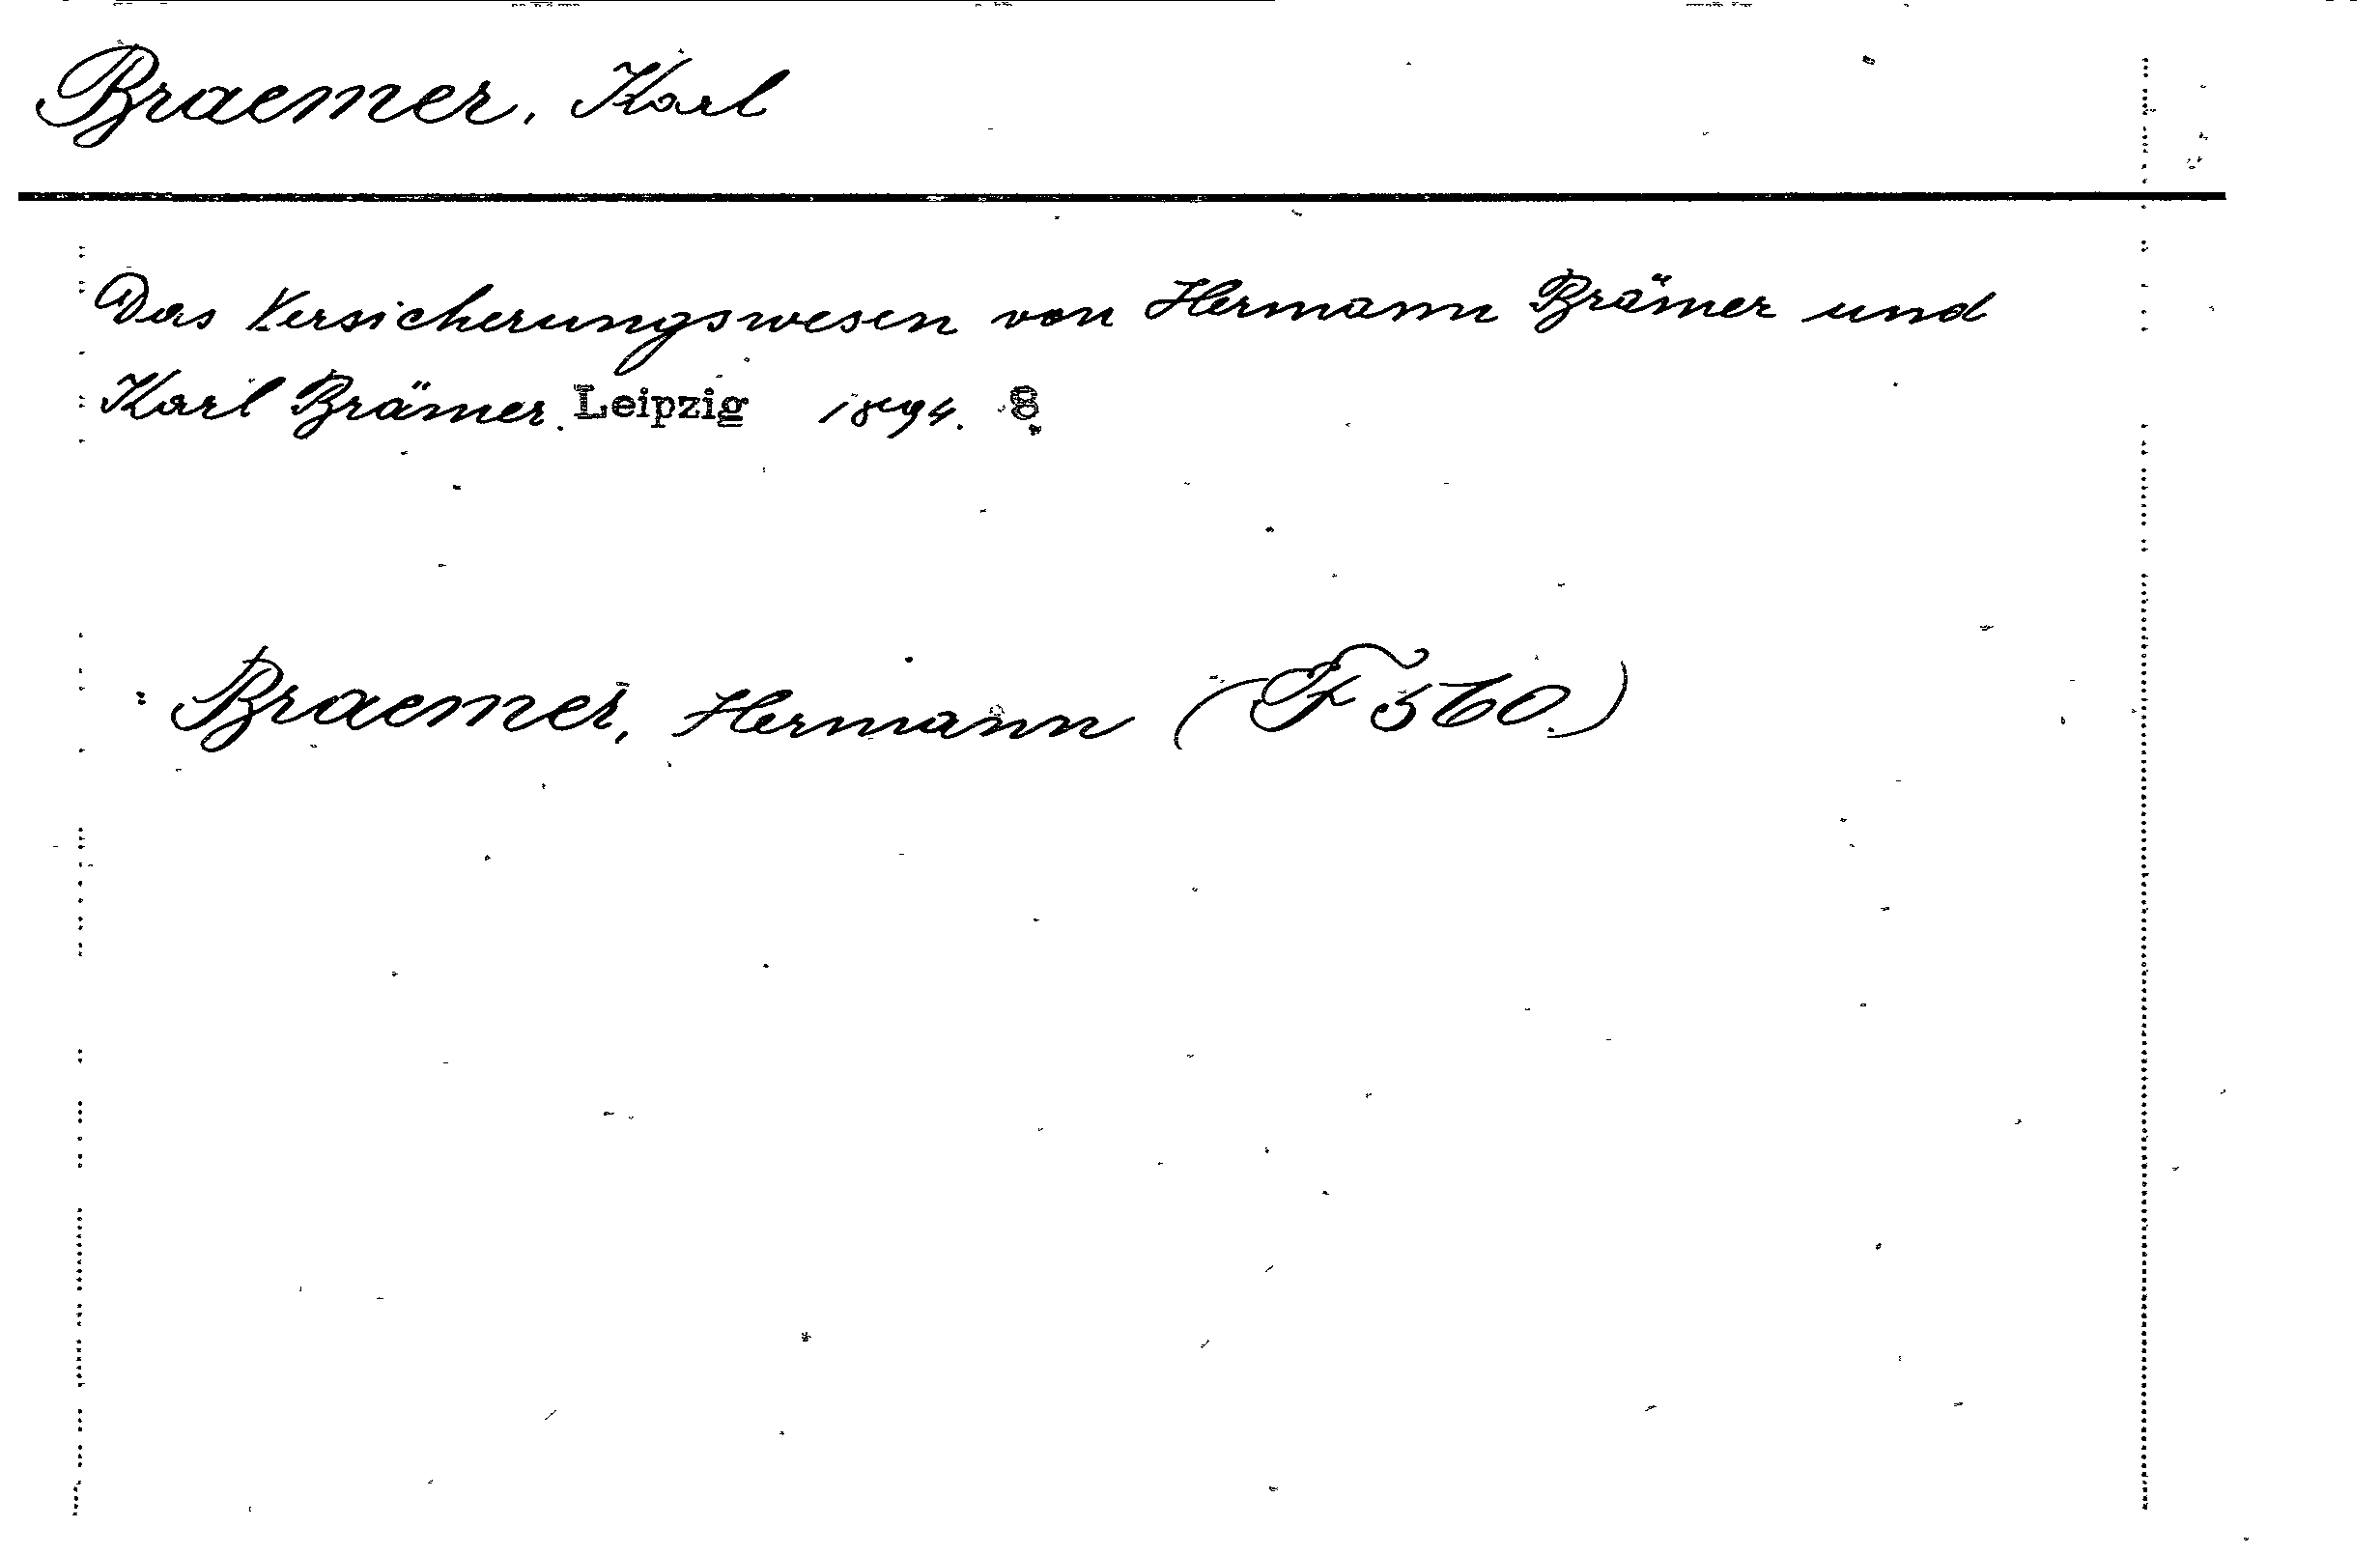 Braemer, Karl
Das Versicherungswesen von Hermann Brämer und
Karl Brämer. Leipzig 1894. 8
Braemer, Hermann (F 560.)